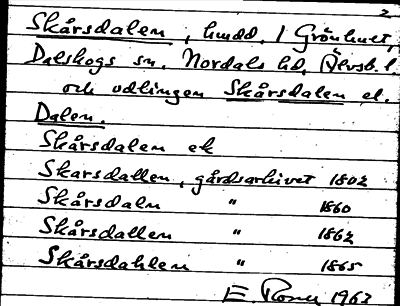 2
Skårsdalen, hmdd. I Grönhult,
Dalskogs sn. Nordals hd, Älvsb. l.
och odlingen Skårsdalen el.
Dalen.
Skårsdalen ek
Skarsdallen, gårdsarkivet 1802
Skårsdaln " 1860
Skårsdallen " 1862
Skårsdahlen " 1865
E. 1962